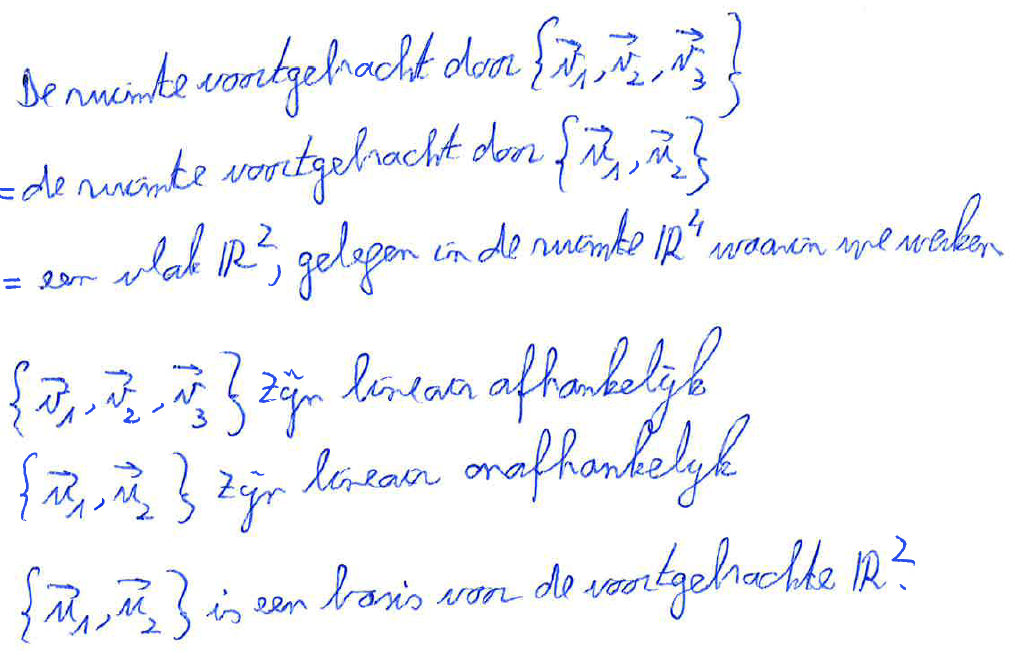 De ruimte voortgebracht door {v⃗₁, v⃗₂, v⃗₃}
= de ruimte voortgebracht door {u⃗₁, u⃗₂}
= een vlak ℝ², gelegen in de ruimte ℝ⁴ waarin we werken
{v⃗₁, v⃗₂, v⃗₃} zijn lineair afhankelijk
{u⃗₁, u⃗₂} zijn lineair onafhankelijk
{u⃗₁, u⃗₂} is een basis voor de voortgebrachte ℝ².